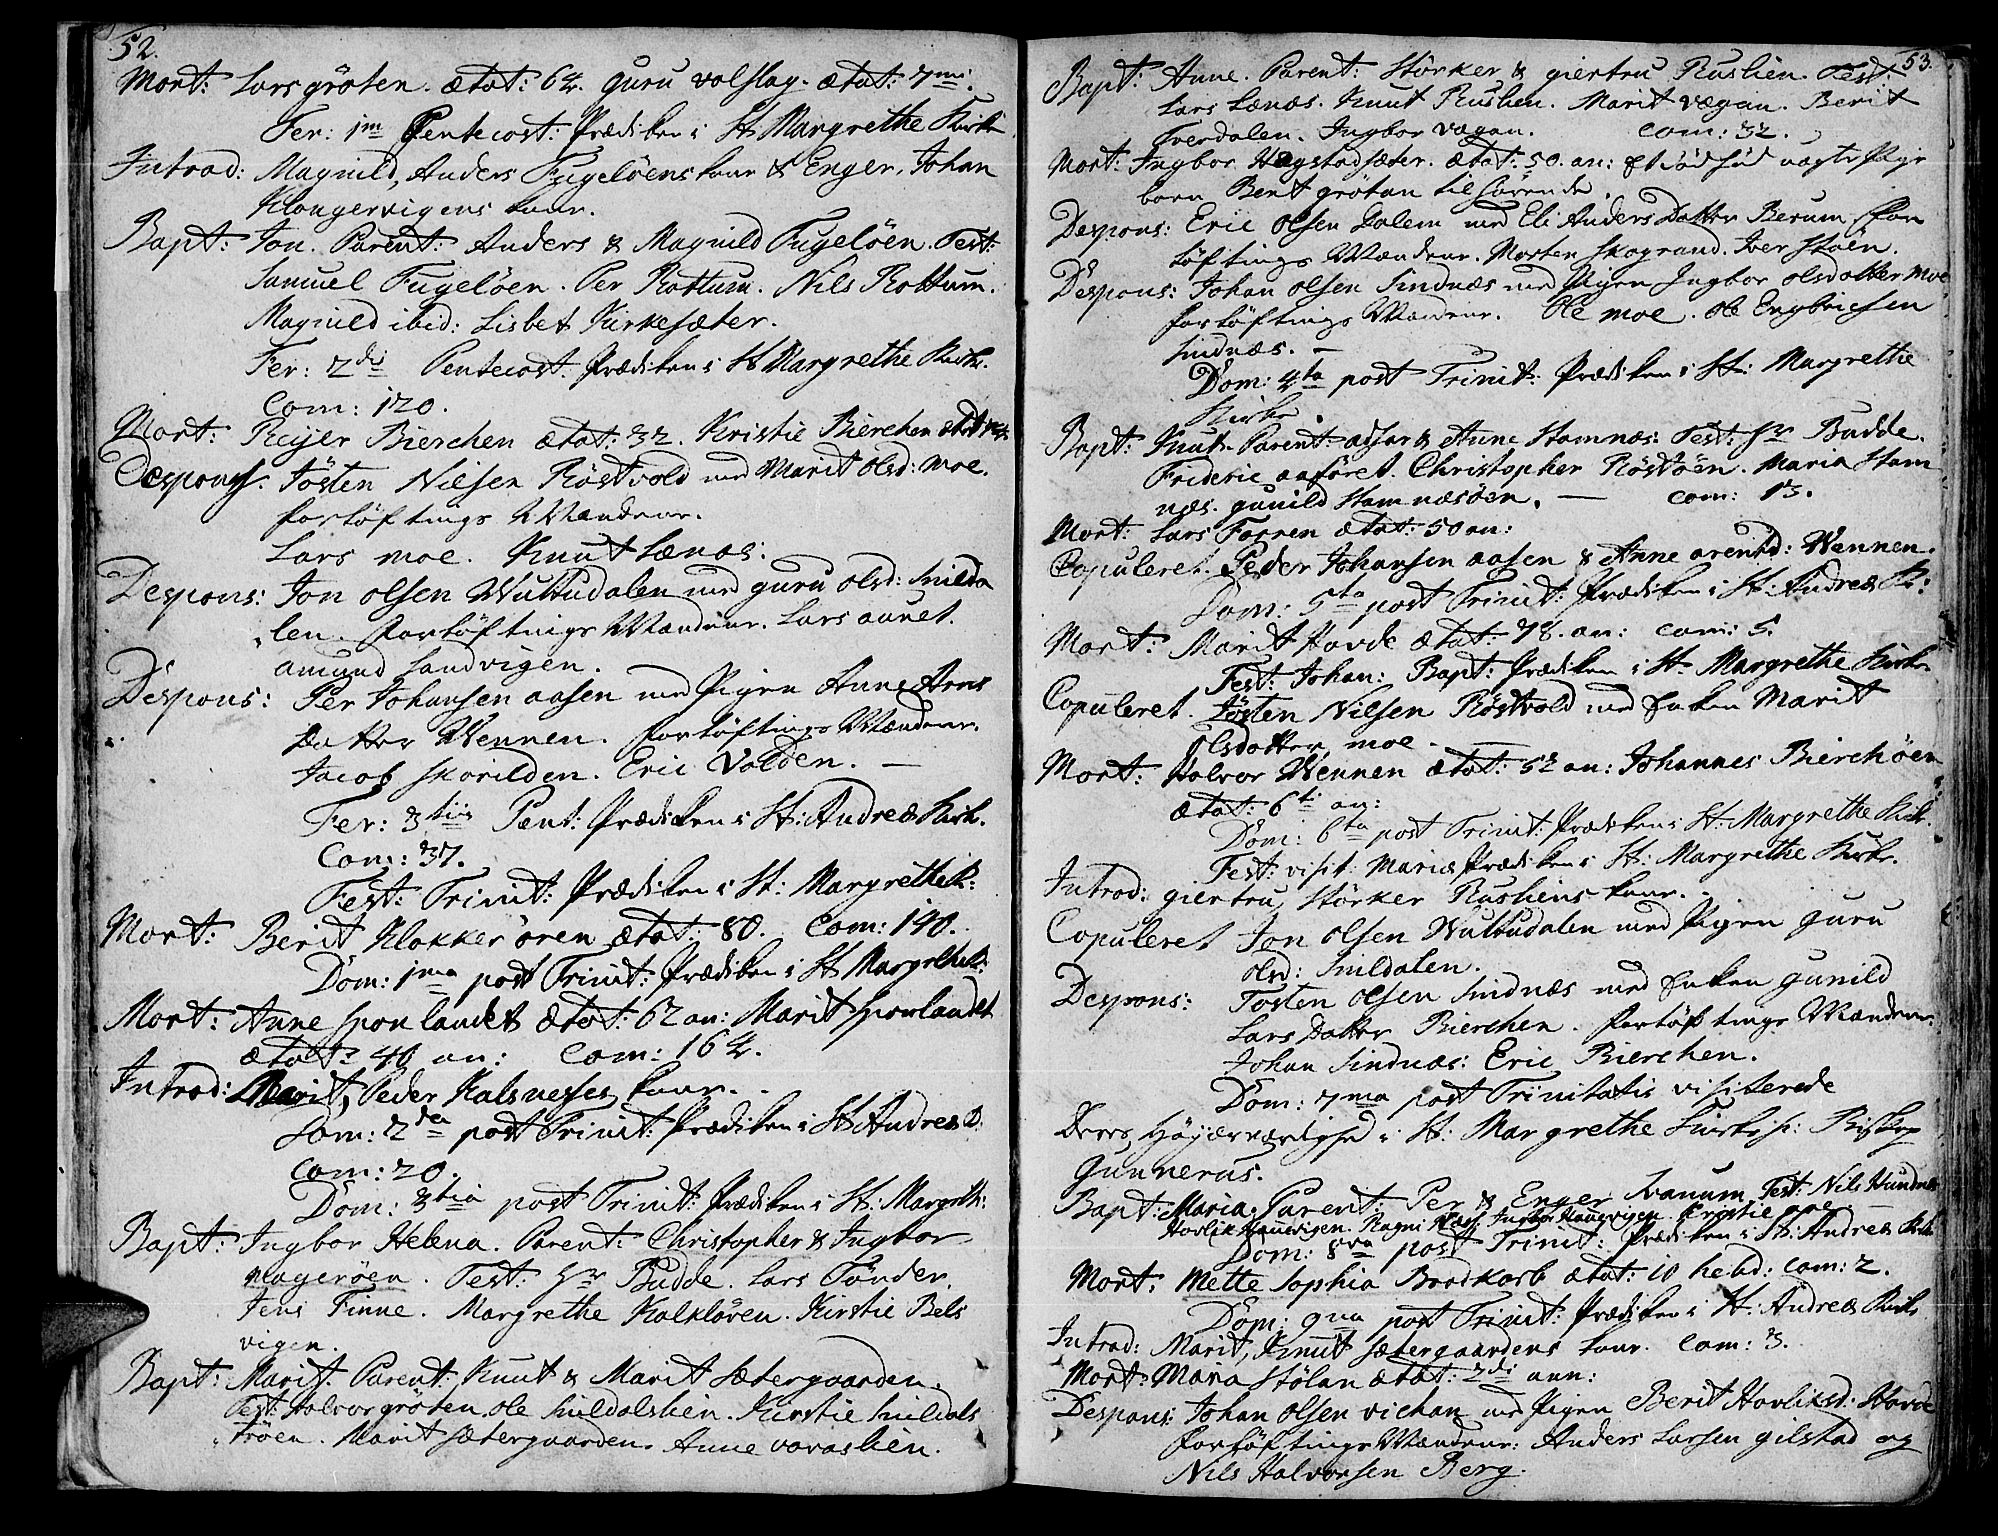 52.
Mort: Lars gröten. ætat: 64. guru volslag. ætat: 7mi.
Fer: 1m Pentecost: Prædiken i St Margrethe Kirke
Introd: Magnild, Anders Fugelöens kaan & Enger, Johan
Klongervigens kaan.
Bapt: Jon. Parent: Anders & Magnild Fugelöen. Test:
Samuel Fugelöen. Per Rottum. Nils Rottum.
Magnild ibid: Lisbet Kirkesæter.
Fer: 2di Pentecost. Prædiken i St Margrethe Kirke.
Com: 120.
Mort: Reijer Bierchen ætat: 32. Kristie Bierchen ætat
Despons. Jösten Nilsen Röstvold med Marit olsd: moe.
forlöftnings Mændene.
Lars moe. Knut Lænæs.
Despons: Jon olsen Wuttudalen med guru olsd: Snilda
len. forlöftnings Mændene. Lars auret.
amund Sandvigen.
Despons: Per Johansen aasen med Pigen Anne Arns
Datter Wennen. forlöftnings Mændene.
Jacob Skorilden. Eric Valöen. —
Fer: 3tiæ Pent: Prædiken i St: Andreæ Kirk.
Com: 37.
Fest: Trinit: Prædiken i St: Margrethe K:
Mort: Berit Klokkerören ætat: 80. Com: 140.
Dom: 1ma post Trinit: Prædiken i St Margrethe K:
Mort: Anne Sponlandet ætat: 62 an: Marit Sponlandet
ætat: 40 an: Com: 164.
Introd: Marit, Peder Kalsneses kaan.
Dom: 2da post Trinit: Prædiken i St Andreæ K:
Com: 20.
Dom: 3tia post Trinit: Prædiken i St: Margreth:
Bapt: Ingbor Helena. Parent: Christopher & Ingbor
mageröen. Test: Hr Budde. Lars Tönder.
Jens Finne. Margrethe Kalklören. Kirstie Bels
vigen.
Bapt: Marit. Parent: Knut & Marit Sætergaarden.
Test: Halvor gröten. ole Snildalslien. Kirstie Snildals
tröen. Marit Sætergaarden. Anne Varaslien.
53.
Bapt: Anne. Parent: Störker & giertru Ruslien. Test:
Lars Lænæs. Knut Ruslien. Marit vægan. Berit
Tverdalen. Ingbor vægan. Com: 32.
Mort: Ingbor Hegstadsæter. ætat: 50. an: et dödföd uægte Pige
barn Berit grötan tilhörende.
Despons: Eric Olsen Dalem med Eli Anders Datter Berum. for
löftnings Mændene. Morten Skogrand. Iver Staën.
Despons: Johan olsen Sindnæs med Pigen Ingbor olsdatter moe
forlöftnings Mændene. Ole moe. ole Engbricsen
Sindnæs. —
Dom: 4ta post Trinit: Prædiken i St: Margrethe
Kirke.
Bapt: Knut. Parent: & Anne Stamnæs: Test: Hr Budde.
Frideric aaföret. Christopher Röstöen. Maria Stam
næs. gunild Stamnæsöen. — Com: 13.
Mort: Lars Forren ætat: 50 an:
Copuleret. Peder Johansen aasen & Anne arentsd: Wennen.
Dom: 5ta post Trinit: Prædiken i St. Andreæ K:
Mort: Marit Hovde ætat: 78. an: Com: 5.
Fest: Johan: Bapt: Prædiken i St. Margrethe Kirk.
Copuleret. Jösten Nilsen Röstvold med Enken Marit
Olsdatter moe. —
Mort: Halvor Wennen ætat: 52 an: Johannes Bierchöen
ætat: 6ti an:
Dom: 6ta post Trinit: Prædiken i St: Margrethe Kirk.
Fest: visit: Mariæ Prædiken i St: Margrethe Kirke.
Introd: giertru, Störker Rusliens kaan.
Copuleret Jon olsen Wuttudalen med Pigen guru
olsd: Snildalen.
Despons: Tosten olsen Sindnæs med Enken gunild
Lars Datter Bierchen. forlöftnings Mændene:
Johan Sindnæs: Eric Bierchen.
Dom: 7ma post Trinitatis visiterede
Deres Höyærværdighed i St: Margrethe Kirke Hr: Biskop
Gunnerus.
Bapt: Maria. Parent: Per & Enger Svanum. Test: Nils Hundnes
Havlik Haugvigen. Ragni Ingbor Haugvigen. Cristie
Dom: 8va post Trinit: Prædiken i St: Andreæ Kirk
Mort: Mette Sophia Brodkorb ætat: 10 hebd: Com: 2.
Dom: 9na post Trinit: Prædiken i St: Andreæ Kirk
Introd: Marit, Knut Sætergaardens kaan. Com: 3.
Mort: Maria Stölan ætat: 2di ann:
Despons: Johan olsen vichan med Pigen Berit Havliksd: Hovde
forlöftnings Mændene: Anders Larsen gilstad og
Nils Halvorsen Berg.